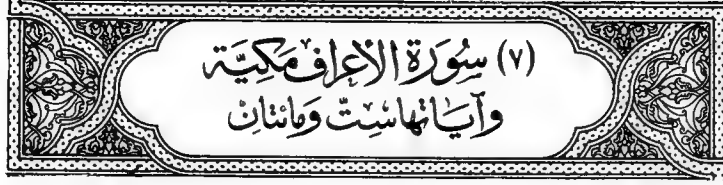 (٧) سُورَة الأعراف مَكيّة
وآيَاتها ستّ وَمائتانْ